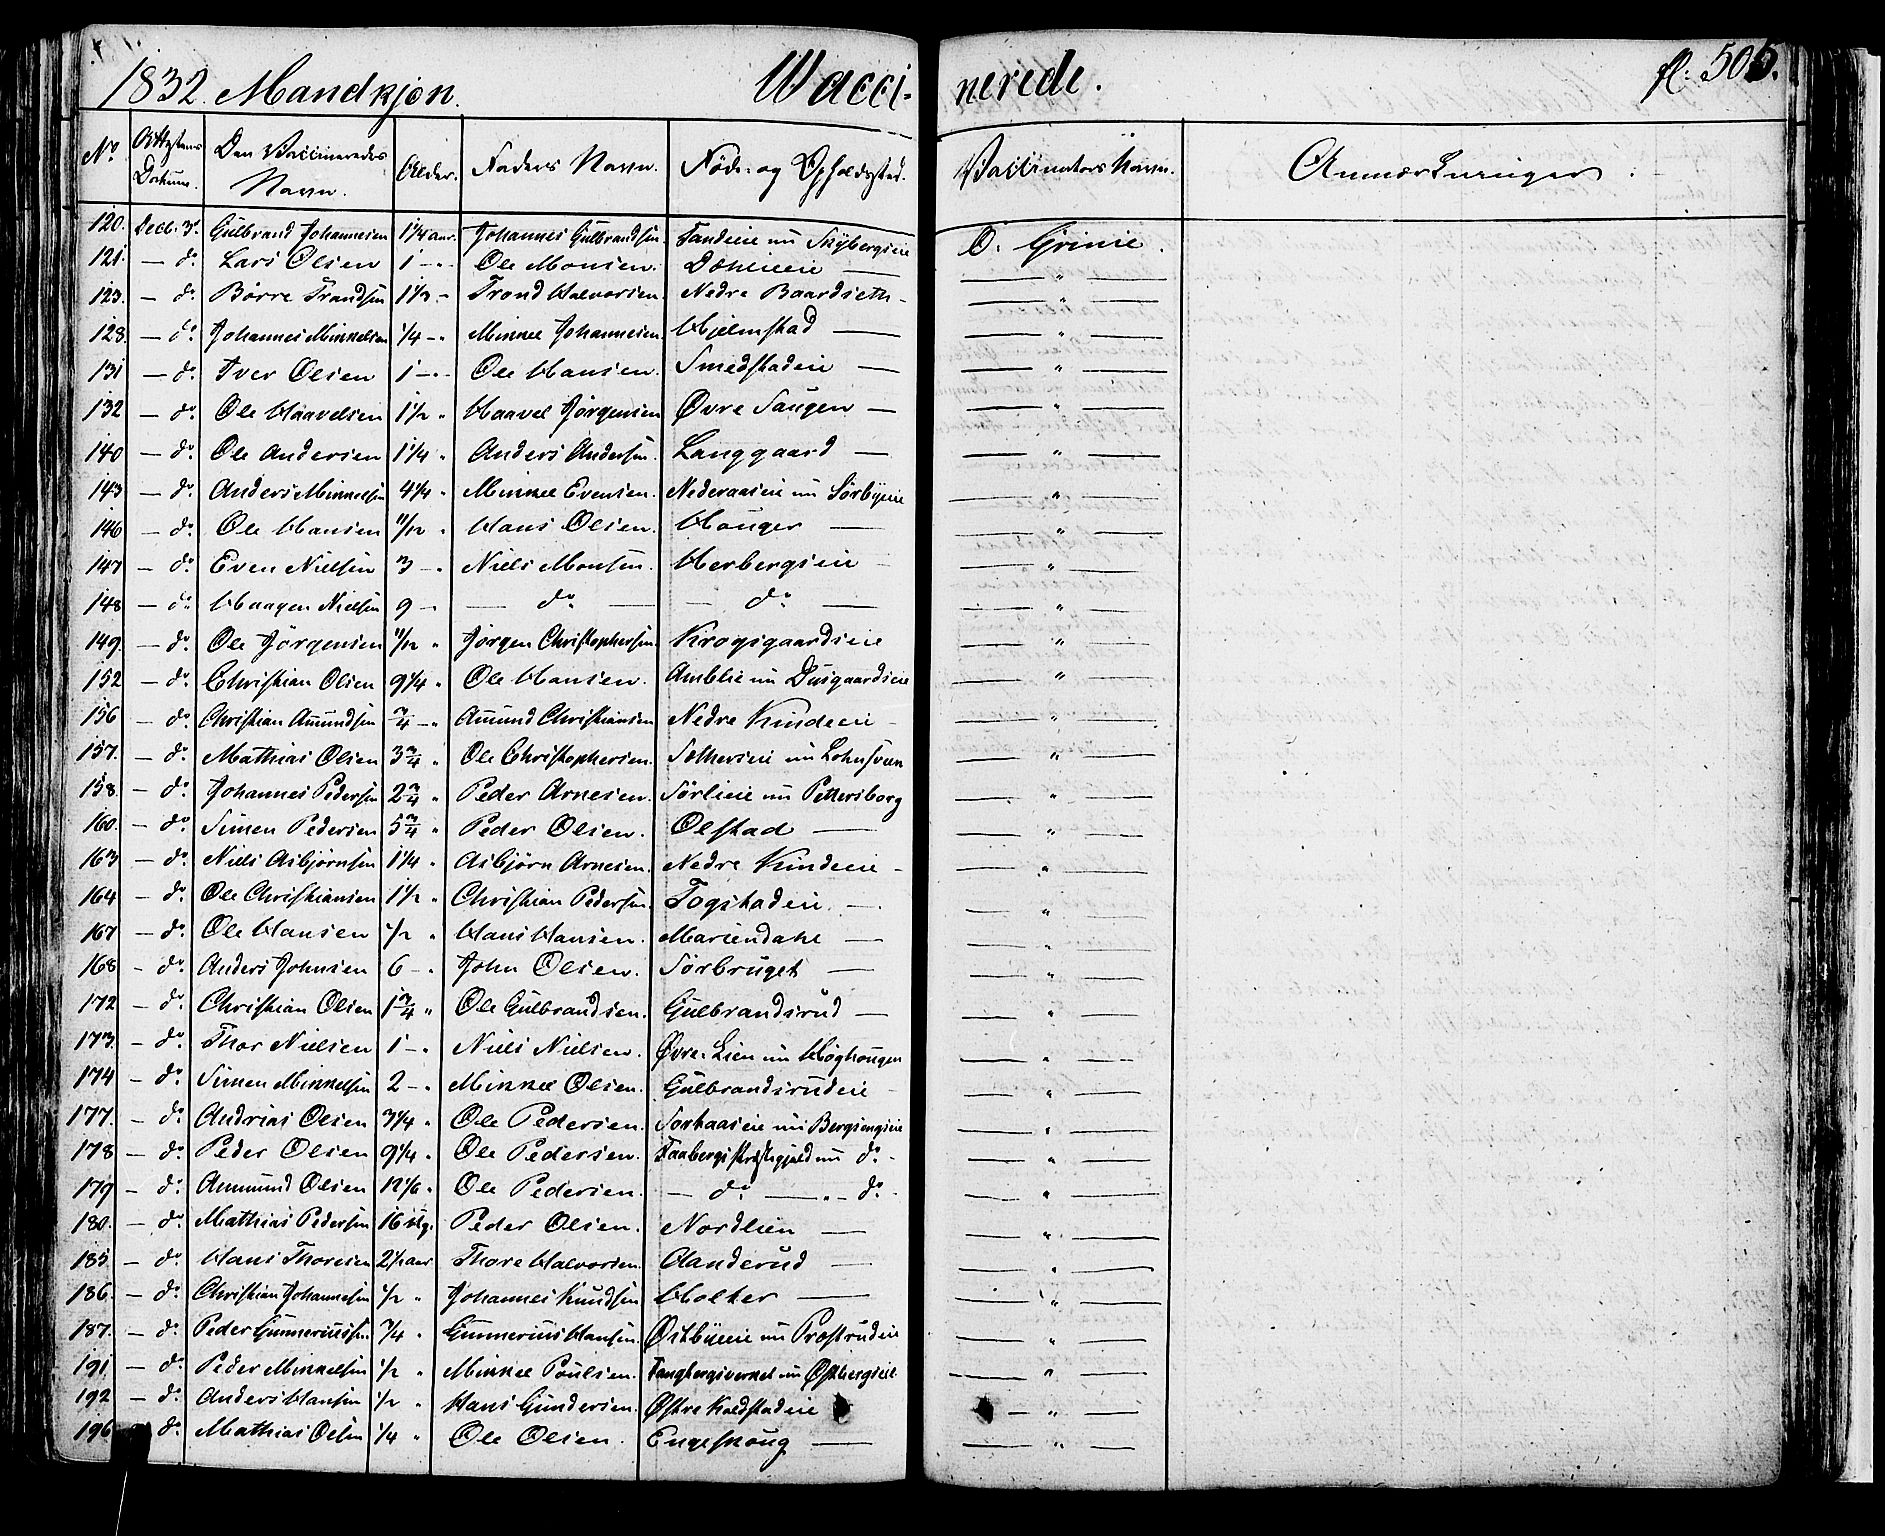 1832. Mandkjøn. Vacci- nerede. fl: 505.
No. Attestens Datum. Den Vaccineredes Navn. Alder. Faders Navn. Føde- og Opholdssted. Vaccinators Navn. Anmærkninger.
120. Decb: 31. Gulbrand Johannesen 1 1/4 aar. Johannes Gulbrandsen. Skybergseie O. Grinie.
121. — do. Lars Olsen 1 — Ole Monsen. Dæhlieeie — — " —
123. — do. Børre Trandsen 1 1/3 - Trond Halvorsen. Nedre Baardseth - — " —
128. — do. Johannes Mikkelsen 1/4 - Mikkel Johannesen. Hjelmstad — — " —
131 — do. Iver Olsen 1 — Ole Hansen. Smedstadeie — — " —
132 — do. Ole Haavelsen 1 1/2 " Haavel Jørgensen Øvre Saugen — — " —
140 — do. Ole Andersen 1 1/4 " Anders Andersen. Langgaard — — " —
143 — do. Anders Mikkelsen 4 1/4 " Mikkel Evensen. Nederaaseie un Sørbyeie — " —
146 — do. Ole Hansen 11/12 " Hans Olsen. Houger — — " —
147 — do. Even Nielsen 3 — Niels Monsen. Herbergseie — — " —
148 — do. Haagen Nielsen 9 - — do. — — do. — — " —
149. — do. Ole Jørgensen 11/12 " Jørgen Christophersen Krogsgaardseie — " —
152 — do. Christian Olsen 9 1/4 " Ole Hansen. Amblie un Dusgaardseie — " —
156 — do. Christian Amundsen 3/4 - Amund Christiansen Nedre Kindeeie - — " —
157. — do. Mathias Olsen 3 3/4 " Ole Christophersen. un — " —
158. — do. Johannes Pedersen 2 3/4 " Peder Arnesen. Sørlieie un Pettersborg — " —
160. — do. Simen Pedersen 5 3/4 " Peder Olsen. Olstad — — " —
163 — do. Niels Asbjørnsen 1 1/4 " Asbjørn Arnesen. Nedre Kindeeie - — " —
164 — do. Ole Christiansen 1 1/2 " Christian Pedersen. Togstadeie. — — " —
167 — do. Ole Hansen 1/2 " Hans Hansen. Mariendahl — — " —
168 - do. Anders Johnsen 6 - John Olsen. Sørbruget — — " —
172 - do. Christian Olsen 1 3/4 " Ole Gulbrandsen. Gulbrandsrud — — " —
173. — do. Thor Nielsen 1 — Niels Nielsen. Øvre Lien un Høghougen — " —
174 — do. Simen Mikkelsen 2 — Mikkel Olsen. Gulbrandsrudeie - — " —
177. — do. Andrias Olsen 3 1/4 " Ole Pedersen. un Bergsengeie — " —
178 — do. Peder Olsen 9 1/4 " Ole Pedersen. Faabergs Præstegjeld un do. - — " —
179 — do. Ammund Olsen 12 1/6 " Ole Pedersen. — do. — " — do. - — " —
180. — do. Mathias Pedersen 16 Peder Olsen. Nordlien — — " —
185. — do. Hans Thoresen 2 1/2 aar Thore Halvorsen. Aanderud — — " —
186. — do. Christian Johannesen 1/2 " Johannes Knudsen Holter — — " —
187. — do. Peder Gunneriussen. 3/4 " Gunnerius Hansen. Østbyeie un Præstrudeie — " —
191. — do. Peder Mikkelsen 1/2 " Mikkel Poulsen. un Østbergseie — " —
192 — do. Anders Hansen 1/2 " Hans Gundersen. Østre Kaldstadeie — " —
196 do. Mathias Olsen 1/4 " Ole Olsen. Engeskoug — — " —